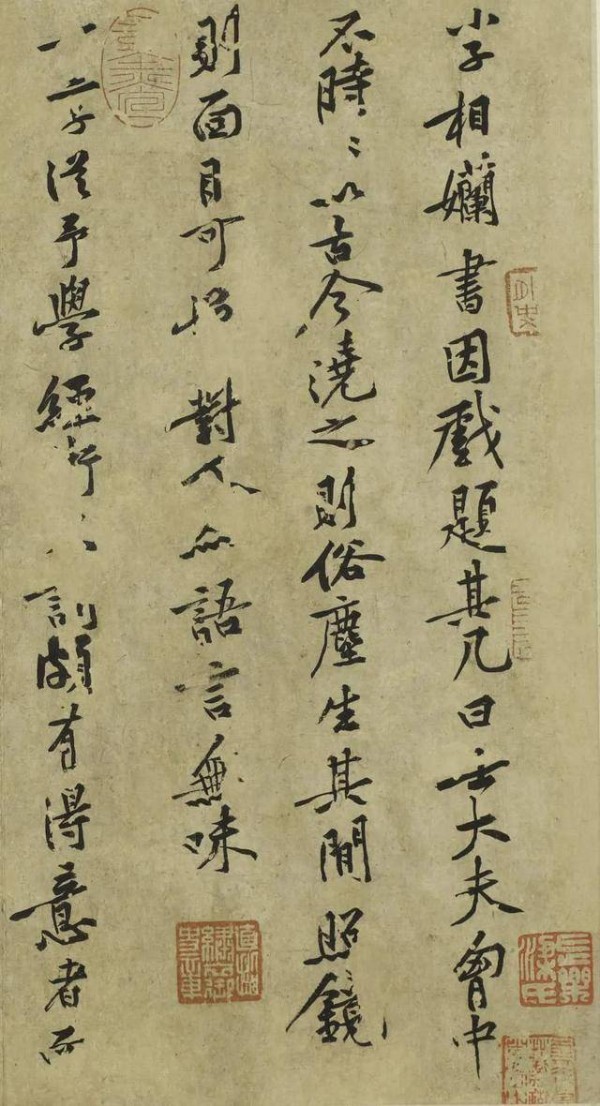 小子相孏書因戲題其几曰士大夫胷中
不時〻以古今澆之則俗塵生其間照鏡
則面目可憎對人亦語言無味
二子從予學經訓頗有得意者而